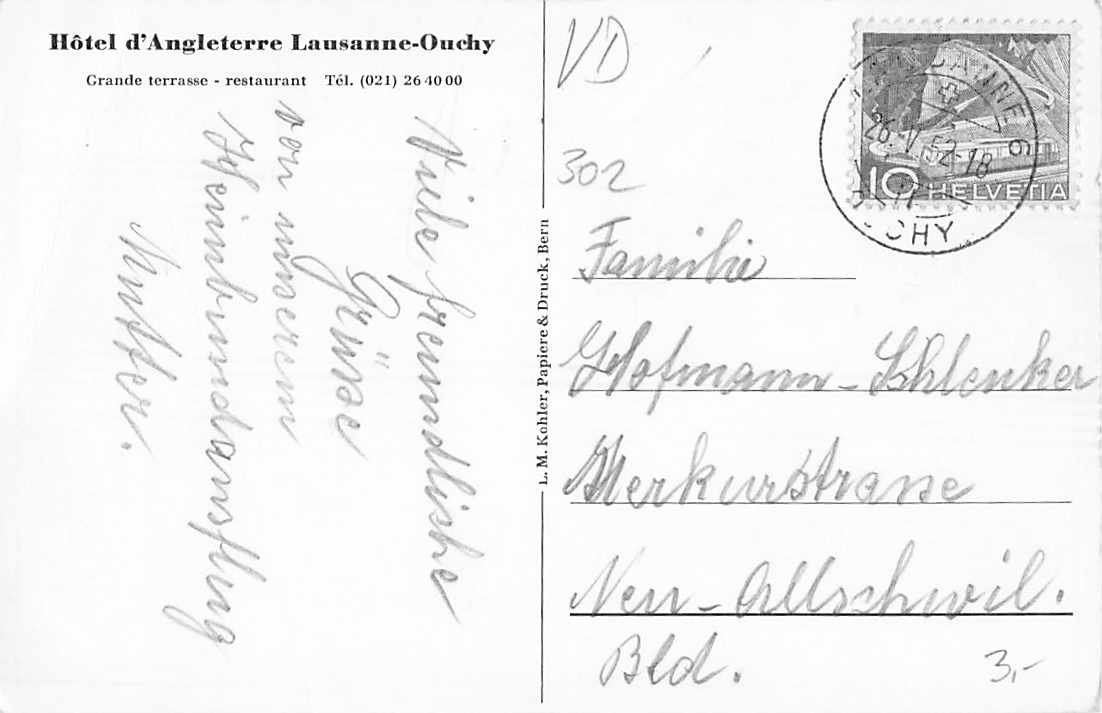 Hôtel d'Angleterre Lausanne-Ouchy
Grande terrasse - restaurant Tél. (021) 26 40 00
Viele freundliche
Grüsse
von unserem
Mutter.
L. M. Kohler, Papiere & Druck, Bern
VD
302
LAUSANNE 6
26. V. 52-18
OUCHY
10 HELVETIA
Familie
Hofmann-Schlenker
Merkurstrasse
Neu-Allschwil.
Bld.
3,-